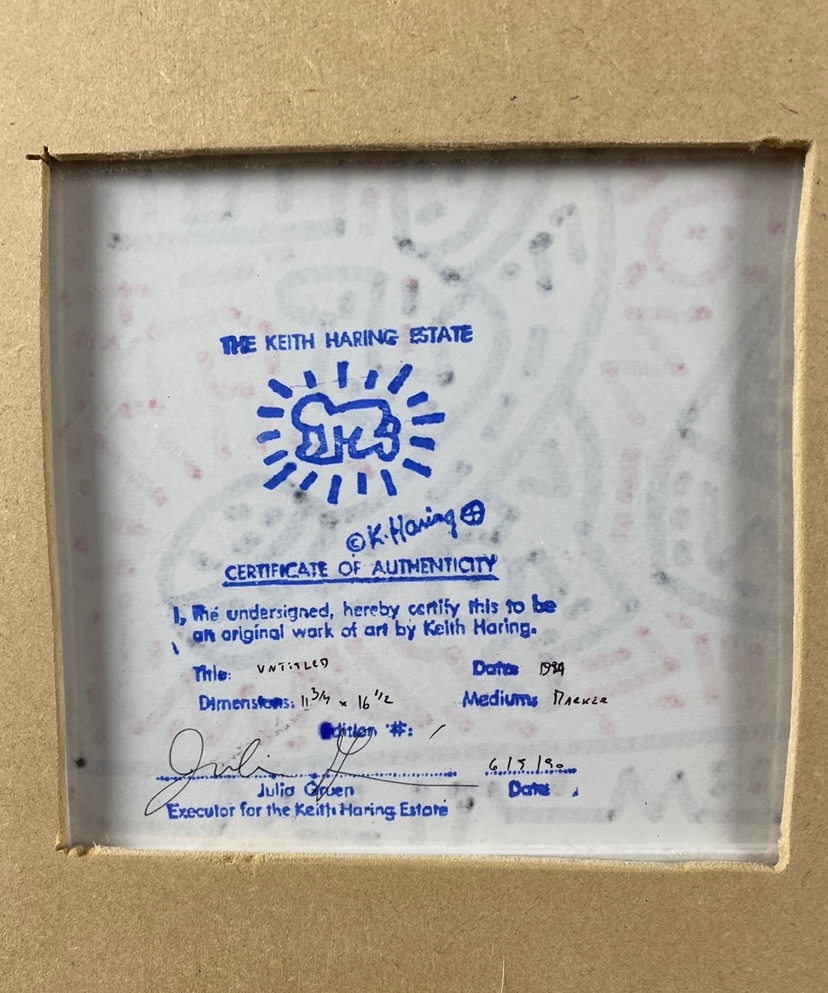 THE KEITH HARING ESTATE
© K. Haring
CERTIFICATE OF AUTHENTICITY
I, the undersigned, hereby certify this to be
an original work of art by Keith Haring.
Title: UNTITLED Date: 1984
Dimensions: 11 3/4 x 16 1/2 Medium: MARKER
Edition #: /
Julia Gruen Date
Executor for the Keith Haring Estate